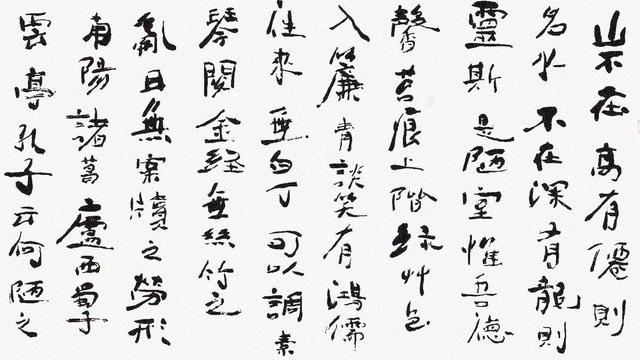 山不在高有僊則
名水不在深有龍則
靈斯是陋室惟吾德
馨苔痕上階綠艸色
入簾青談笑有鴻儒
往來無白丁可以調素
琴閱金經無絲竹之
亂耳無案牘之勞形
南陽諸葛廬西蜀子
雲亭孔子云何陋之